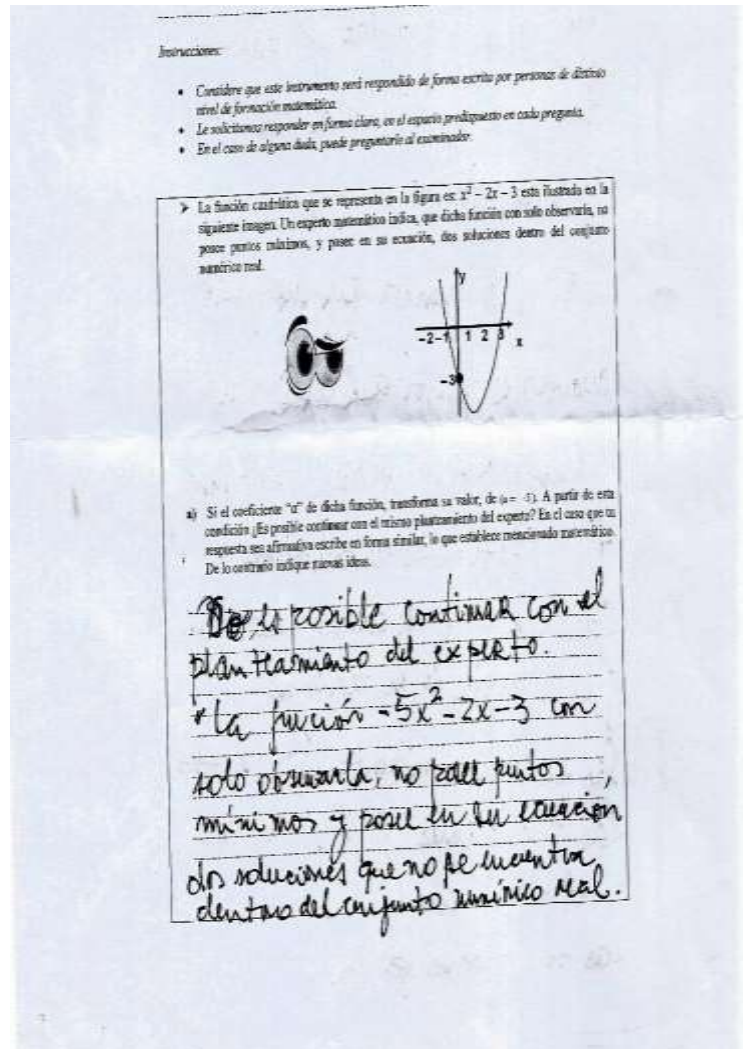 Instrucciones:
• Considere que este instrumento será respondido de forma escrita por personas de distinto
nivel de formación matemática.
• Le solicitamos responder en forma clara, en el espacio predispuesto en cada pregunta.
• En el caso de alguna duda, puede preguntarlo al examinador.
➤ La función cuadrática que se representa en la figura es: x² – 2x – 3 esta ilustrada en la
siguiente imagen. Un experto matemático indica, que dicha función con solo observarla, no
posee puntos máximos, y posee en su ecuación, dos soluciones dentro del conjunto
numérico real.
y
-2 -1 1 2 3 x
-3
a) Si el coeficiente "a" de dicha función, transforma su valor, de (a = -5). A partir de esta
condición ¿Es posible continuar con el mismo planteamiento del experto? En el caso que tu
respuesta sea afirmativa escribe en forma similar, lo que establece mencionado matemático.
De lo contrario indique nuevas ideas.
es posible continuar con el
planteamiento del experto.
* La función -5x² - 2x - 3 con
solo observarla, no posee puntos
mínimos y posee en su ecuación,
dos soluciones que no se encuentra
dentro del conjunto numérico real.